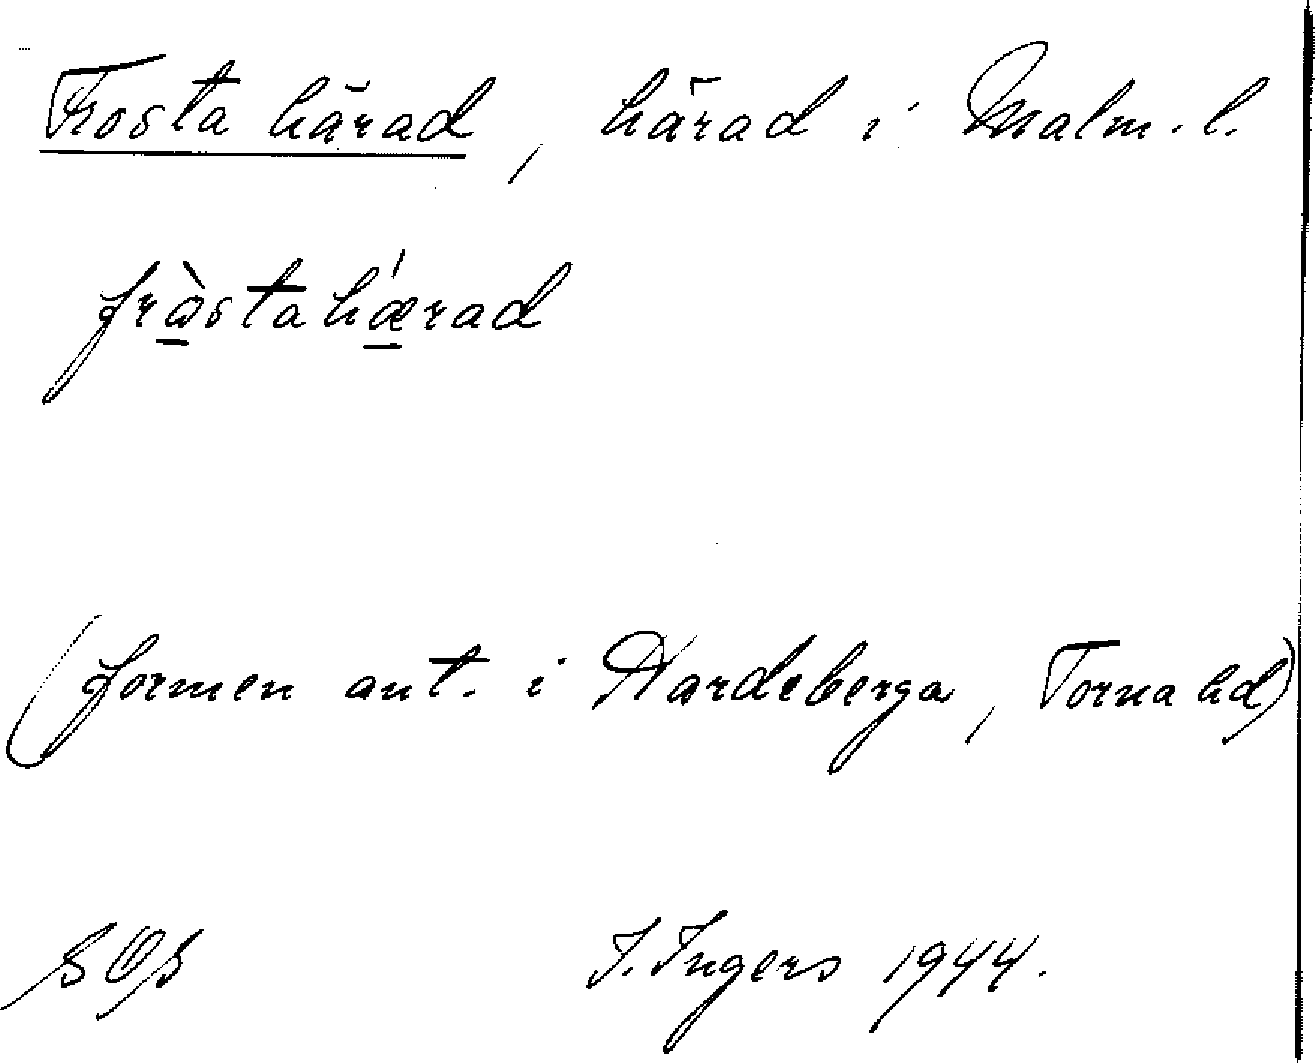 Frosta härad, härad i Malm. l.
fròstahǽrad
(formen ant. i Hardeberga, Torna hd)
SOS
I. Ingers 1944.